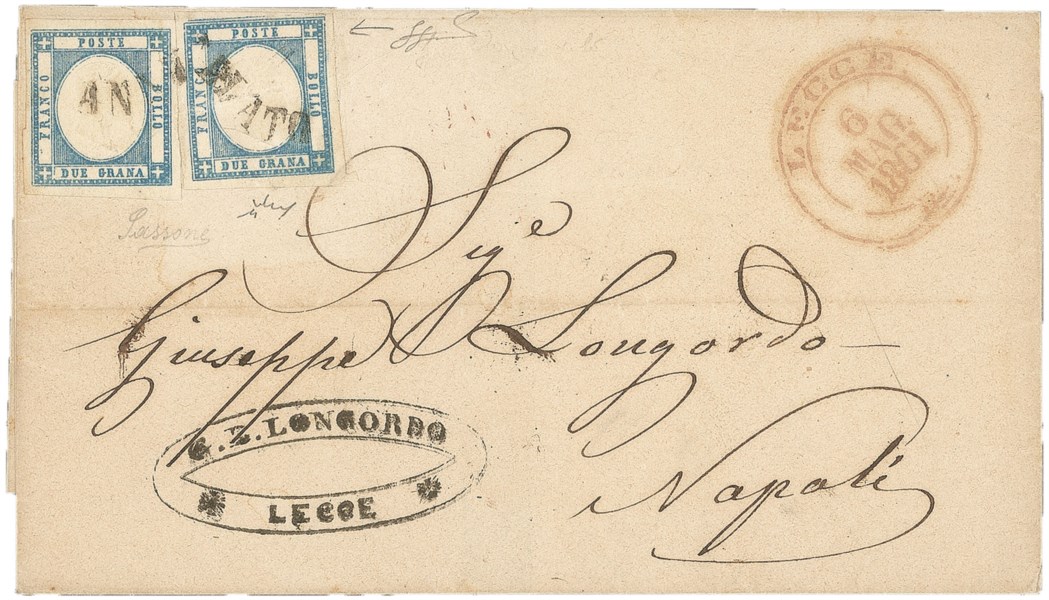 POSTE
FRANCO
BOLLO
DUE GRANA
POSTE
FRANCO
BOLLO
DUE GRANA
ANNULLATO
LECCE
6
MAG.
1861
Passone
Sig.e
Giuseppe Longordo
Napoli
G. Z. LONGORDO
LECCE